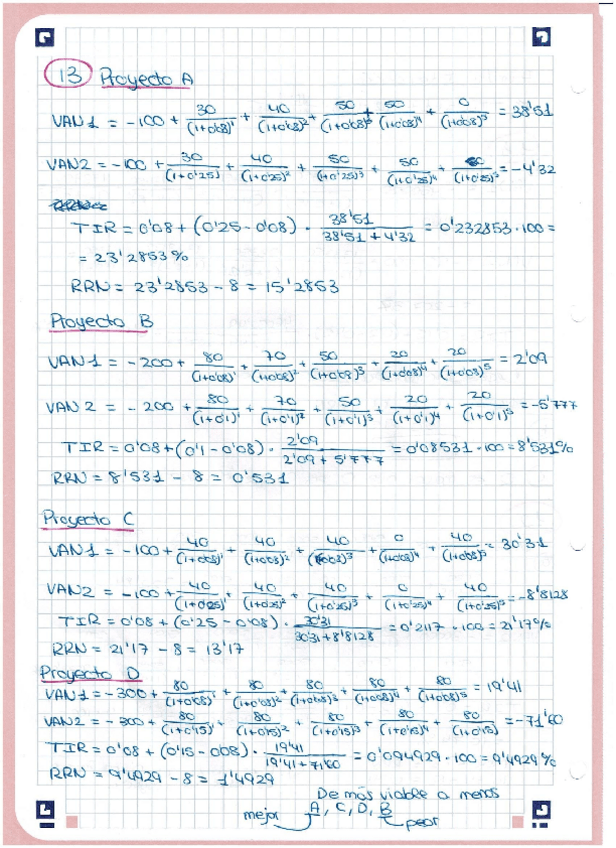 13 Proyecto A
VAN1 = -100 + 30/(1+0'08)¹ + 40/(1+0'08)² + 50/(1+0'08)³ + 50/(1+0'08)⁴ + 0/(1+0'08)⁵ = 38'51
VAN2 = -100 + 30/(1+0'25) + 40/(1+0'25)² + 50/(1+0'25)³ + 50/(1+0'25)⁴ + /(1+0'25)⁵ = -4'32
TIR = 0'08 + (0'25 - 0'08) · 38'51/(38'51 + 4'32) = 0'232853 · 100 =
= 23'2853%
RRN = 23'2853 - 8 = 15'2853
Proyecto B
VAN1 = -200 + 80/(1+0'08)¹ + 70/(1+0'08)² + 50/(1+0'08)³ + 20/(1+0'08)⁴ + 20/(1+0'08)⁵ = 2'09
VAN2 = -200 + 80/(1+0'1)¹ + 70/(1+0'1)² + 50/(1+0'1)³ + 20/(1+0'1)⁴ + 20/(1+0'1)⁵ = -5'777
TIR = 0'08 + (0'1 - 0'08) · 2'09/(2'09 + 5'777) = 0'08531 · 100 = 8'531%
RRN = 8'531 - 8 = 0'531
Proyecto C
VAN1 = -100 + 40/(1+0'08)¹ + 40/(1+0'08)² + 40/(1+0'08)³ + 0/(1+0'08)⁴ + 40/(1+0'08)⁵ = 30'31
VAN2 = -100 + 40/(1+0'25)¹ + 40/(1+0'25)² + 40/(1+0'25)³ + 0/(1+0'25)⁴ + 40/(1+0'25)⁵ = -8'8128
TIR = 0'08 + (0'25 - 0'08) · 30'31/(30'31 + 8'8128) = 0'2117 · 100 = 21'17%
RRN = 21'17 - 8 = 13'17
Proyecto D
VAN1 = -300 + 80/(1+0'08)¹ + 80/(1+0'08)² + 80/(1+0'08)³ + 80/(1+0'08)⁴ + 80/(1+0'08)⁵ = 19'41
VAN2 = -300 + 80/(1+0'15)¹ + 80/(1+0'15)² + 80/(1+0'15)³ + 80/(1+0'15)⁴ + 80/(1+0'15) = -71'60
TIR = 0'08 + (0'15 - 0'08) · 19'41/(19'41 + 71'60) = 0'094929 · 100 = 9'4929%
RRN = 9'4929 - 8 = 1'4929
De más viable a menos
mejor A, C, D, B peor